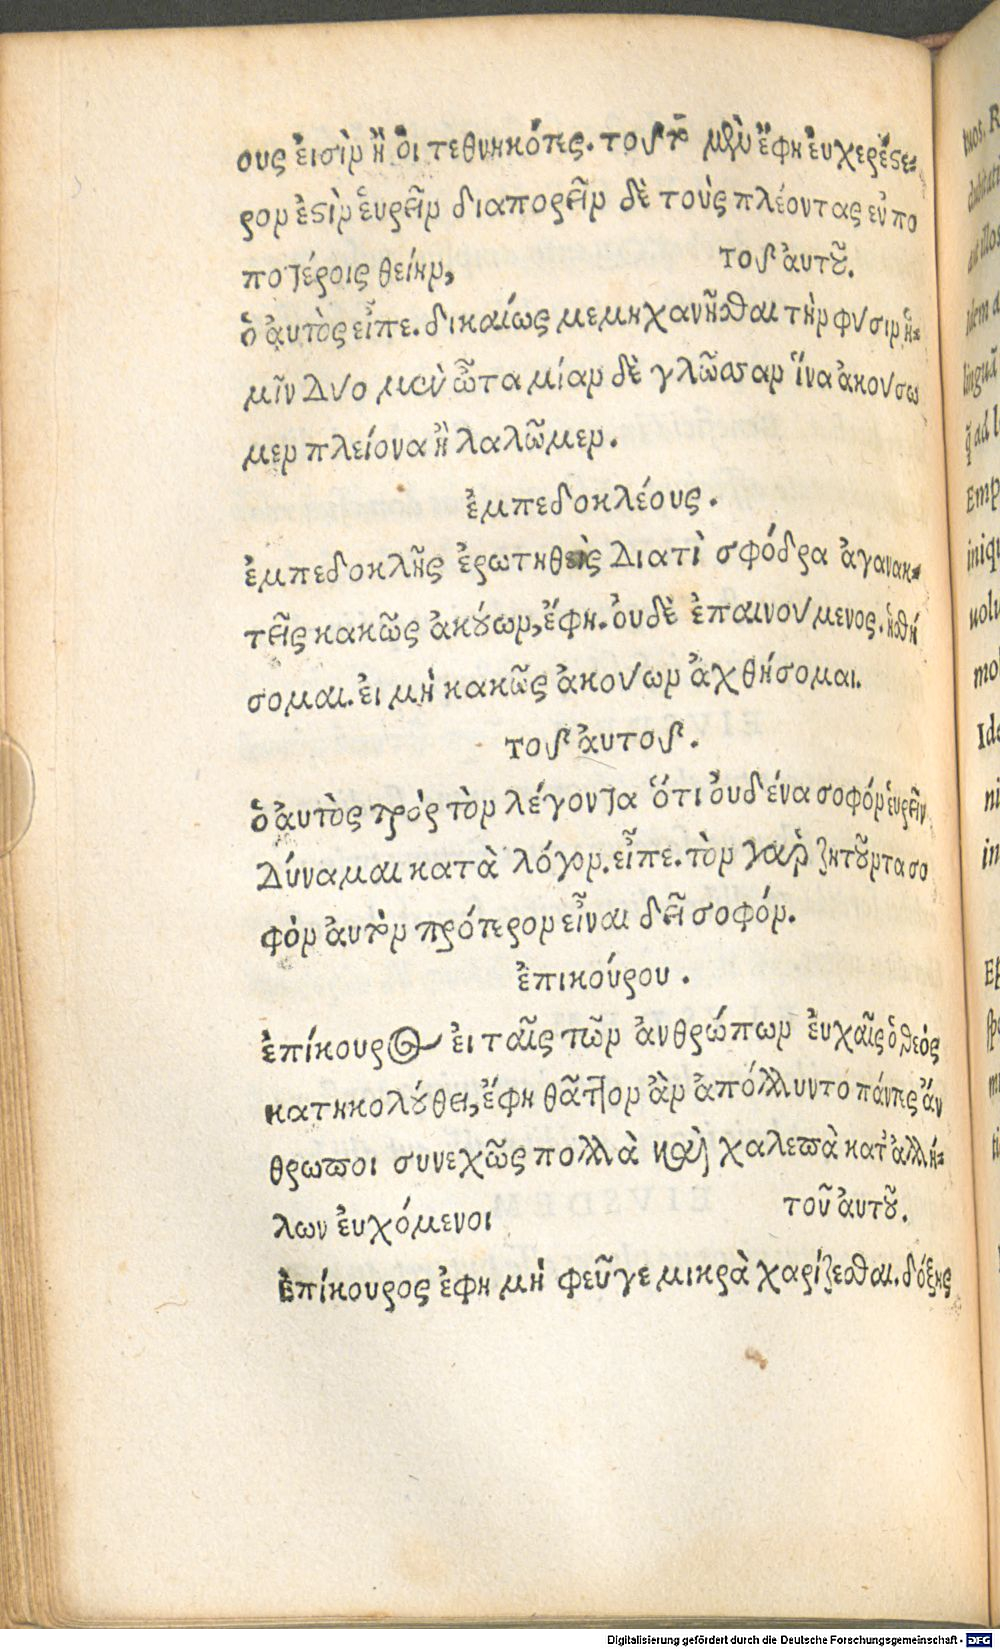 ους ἐισὶν ἢ ὁι τεθνηκότες. τοῦτο μὲν ἔφη ἐυχερέστε-
ρον ἐστὶν ἑυρεῖν διαπορεῖν δὲ τοὺς πλέοντας εὖ πο
ποτέροις θείην, τοῦ ἀυτοῦ.
ὁ ἀυτὸς εἶπε. δικαίως μεμηχανῆσθαι τὴν φύσιν ἡ-
μῖν Δύο μὲν ὦτα μίαν δὲ γλῶσσαν ἵνα ἀκούσω
μεν πλείονα ἢ λαλῶμεν.
ἐμπεδοκλέους.
ἐμπεδοκλῆς ἐρωτηθεὶς Διατὶ σφόδρα ἀγανακ-
τεῖς κακῶς ἀκούων, ἔφη. ὀυδὲ ἐπαινούμενος. ἡσθή
σομαι. ἐι μὴ κακῶς ἀκούων ἀχθήσομαι.
τοῦ ἀυτοῦ.
ὁ ἀυτὸς πρὸς τὸν λέγοντα ὅτι ὀυδένα σοφόν ἑυρεῖν
Δύναμαι κατὰ λόγον. εἶπε. τὸν γαρ ζητοῦντα σο
φὸν ἀυτὸν πρότερον εἶναι δεῖ σοφόν.
ἐπικούρου.
ἐπίκουρος ἐι ταῖς τῶν ἀνθρώπων ἐυχαῖς ὁ θεός
κατηκολούθει, ἔφη θᾶττον ἂν ἀπόλλυντο πάντες ἄν
θρωποι συνεχῶς πολλὰ καὶ χαλεπὰ κατ' ἀλλή-
λων ἐυχόμενοι τοῦ ἀυτοῦ.
ἐπίκουρος ἐφη μὴ φεῦγε μικρὰ χαρίζεσθαι. δόξης
Digitalisierung gefördert durch die Deutsche Forschungsgemeinschaft - DFG